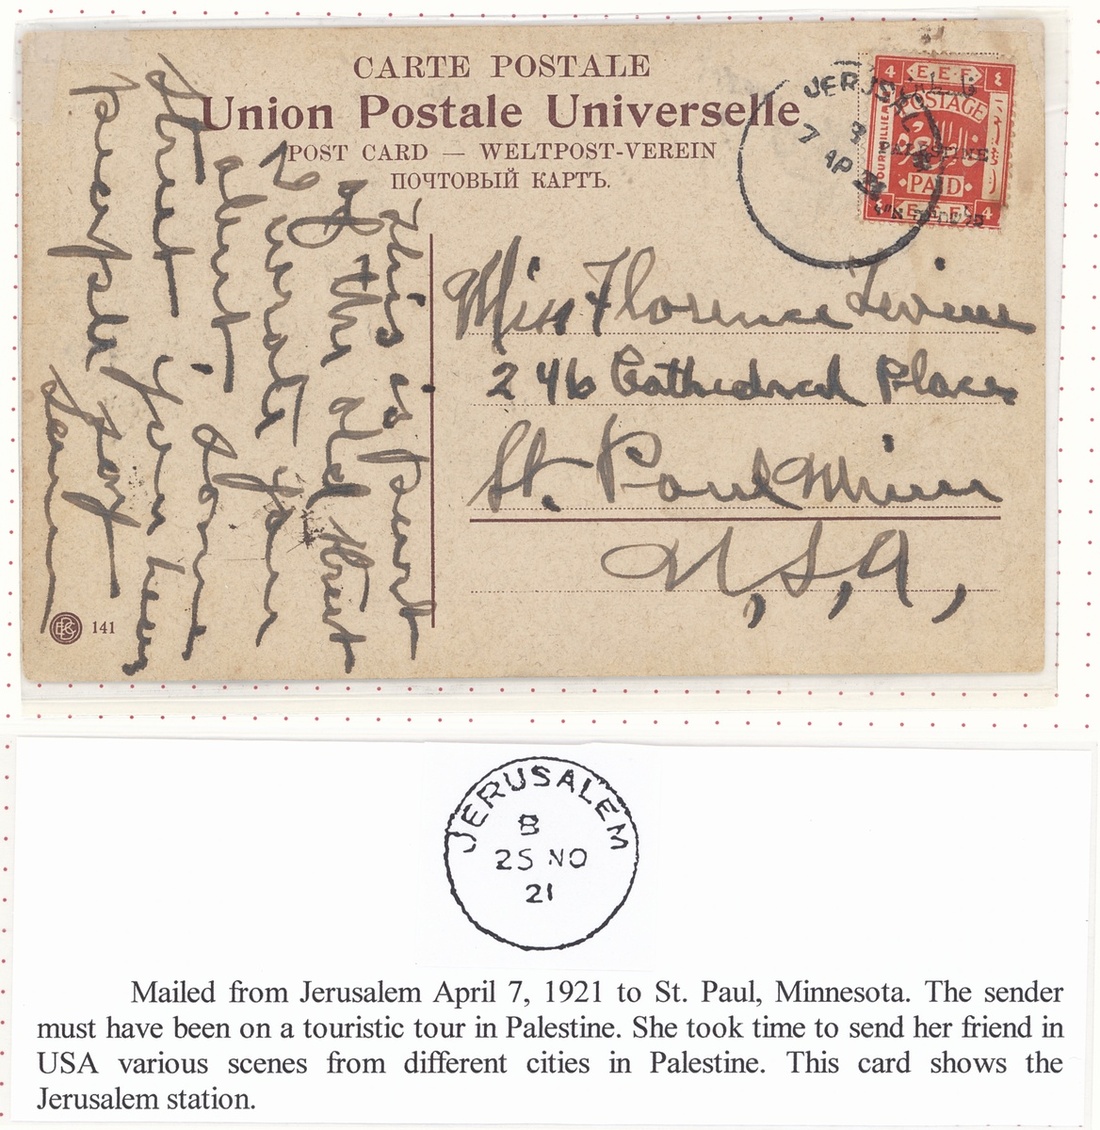 CARTE POSTALE
Union Postale Universelle
POST CARD — WELTPOST-VEREIN
ПОЧТОВЫЙ КАРТЪ.
JERUS
7 AP 21
4 E.E.F. ٤
POSTAGE
PALESTINE
PAID
E.E.F. 4
Miss Florence Levine
246 Cathedral Place
St. Paul Minn
U,S,A,
This is part
of the old Street
you
about. Some
Street you
people
141
JERUSALEM
B
25 NO
21
Mailed from Jerusalem April 7, 1921 to St. Paul, Minnesota. The sender
must have been on a touristic tour in Palestine. She took time to send her friend in
USA various scenes from different cities in Palestine. This card shows the
Jerusalem station.